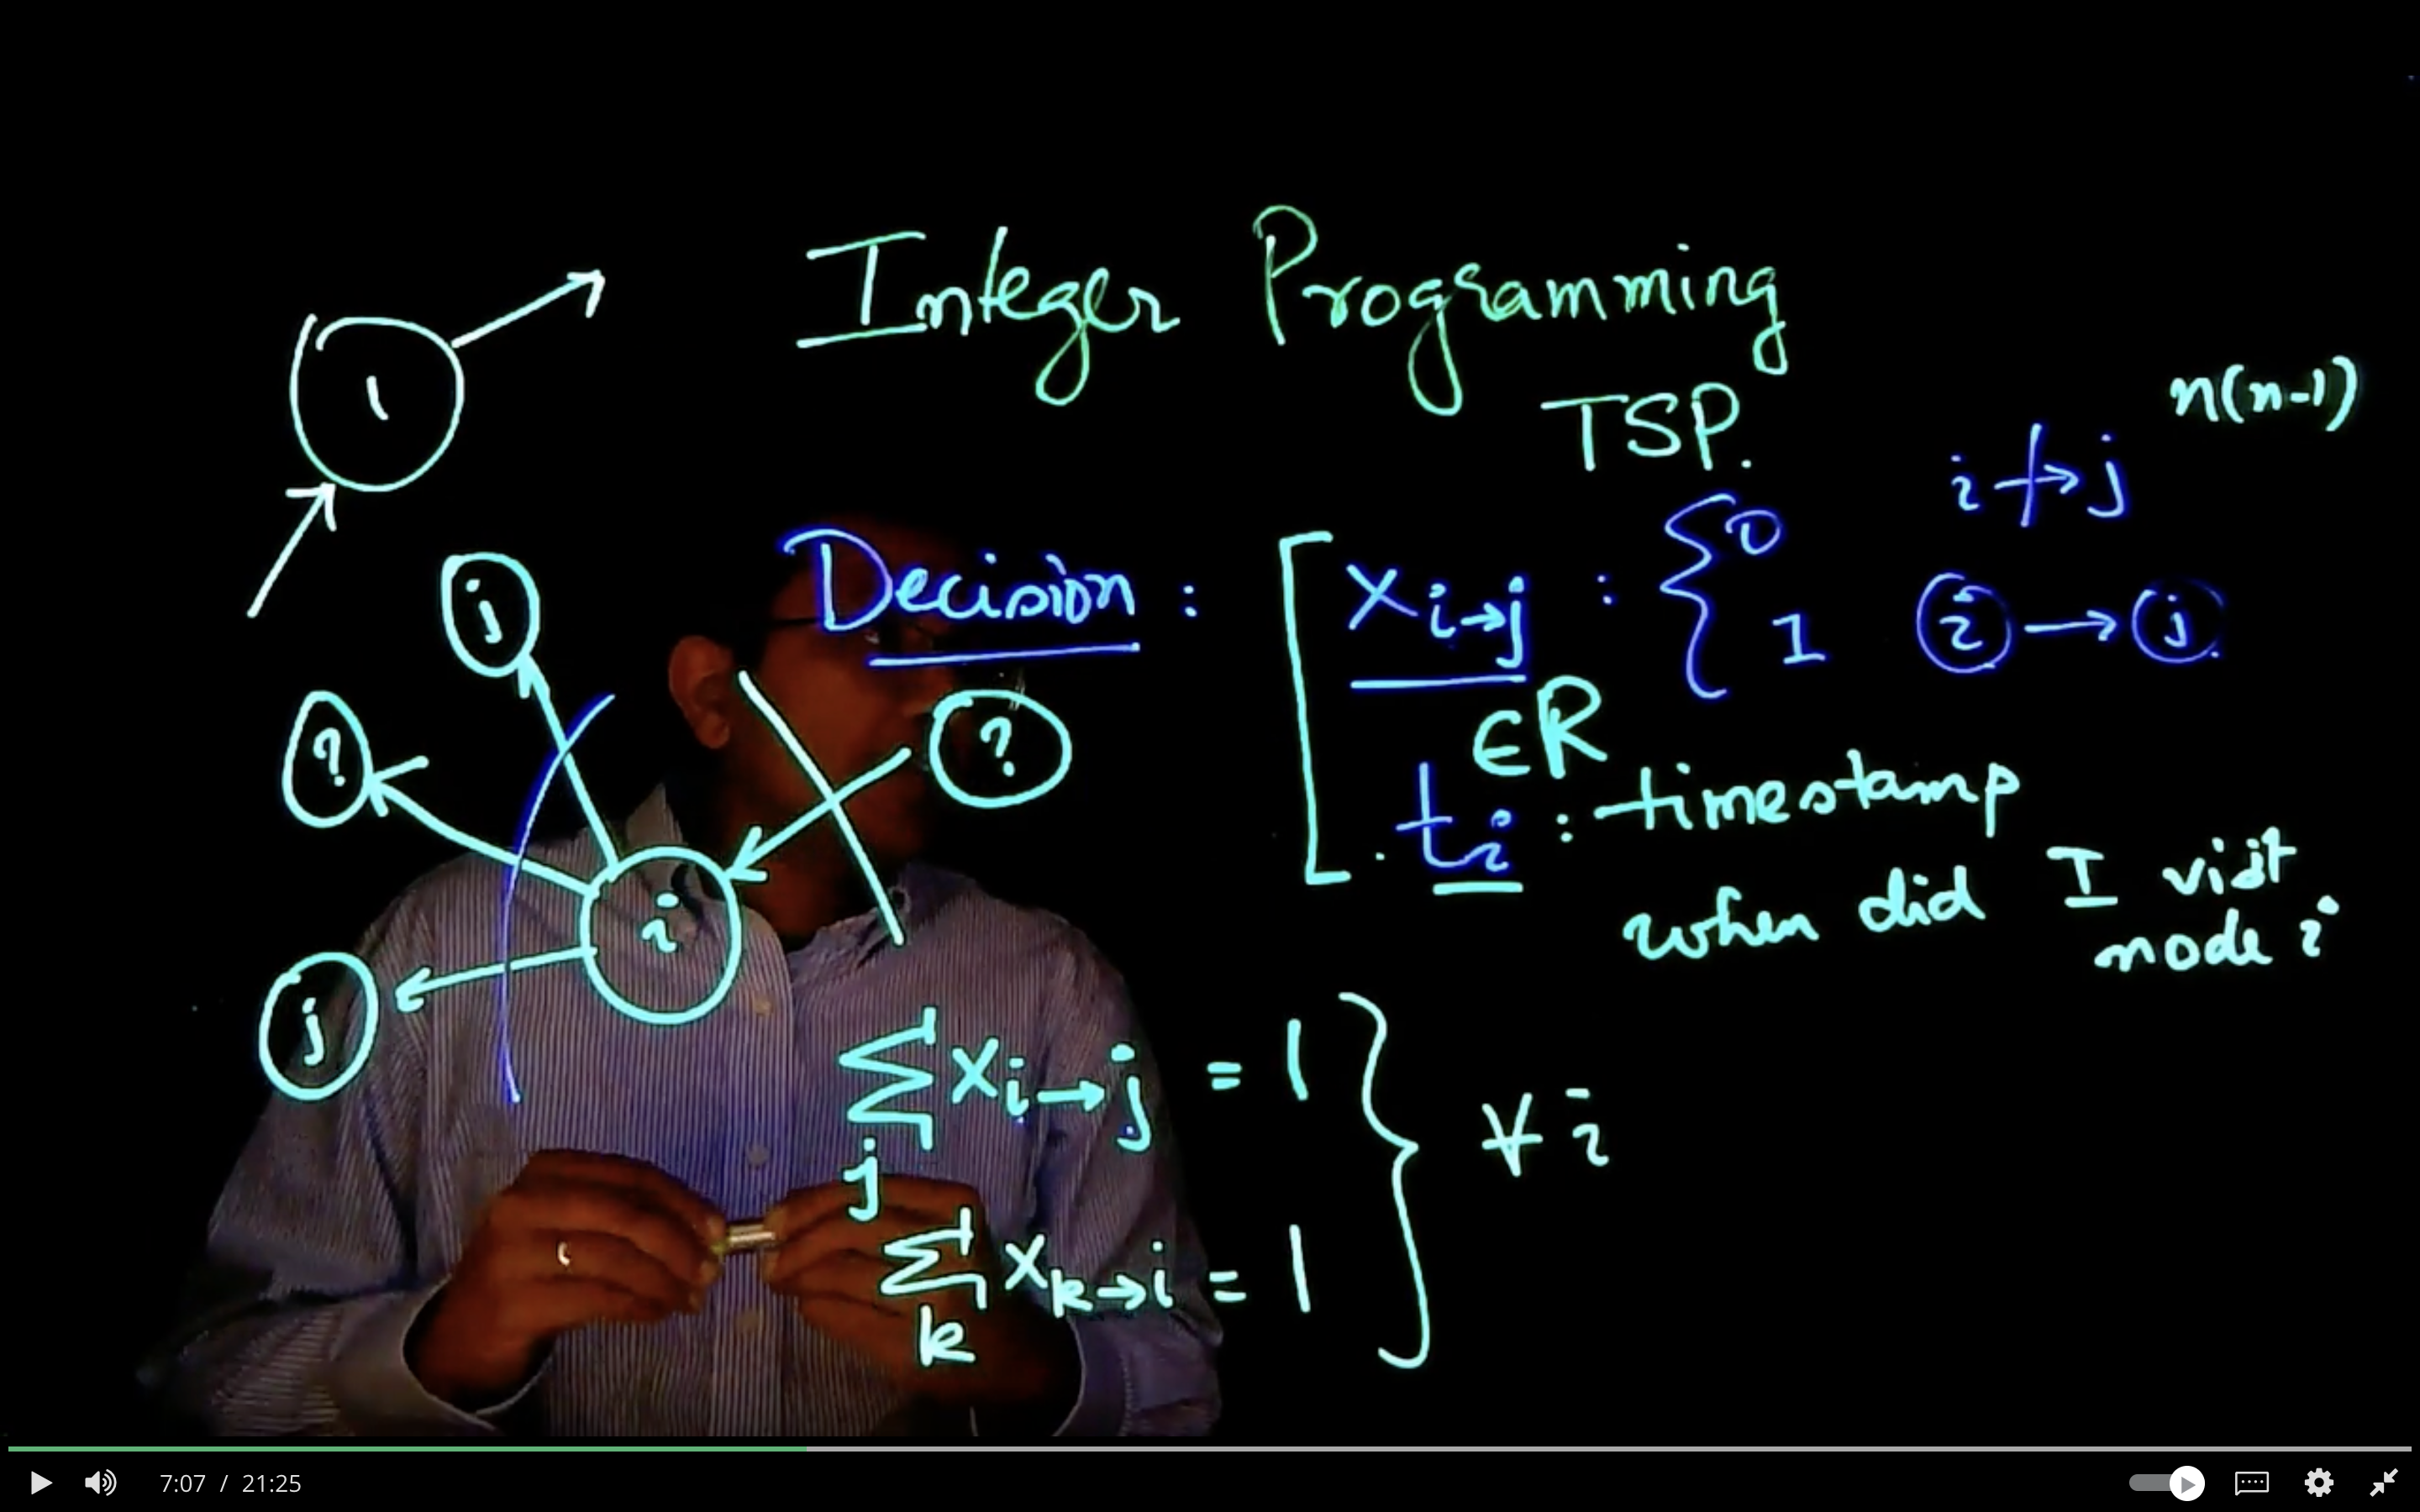 Integer Programming
TSP.
n(n-1)
1
i ↛ j
Decision : [ x i→j : { 0
1 i → j
j
∈ R
? ?
t i : timestamp
when did I visit
node i
i
j
∑ j x i→j = 1
} ∀ i
∑ k x k→i = 1
7:07 / 21:25